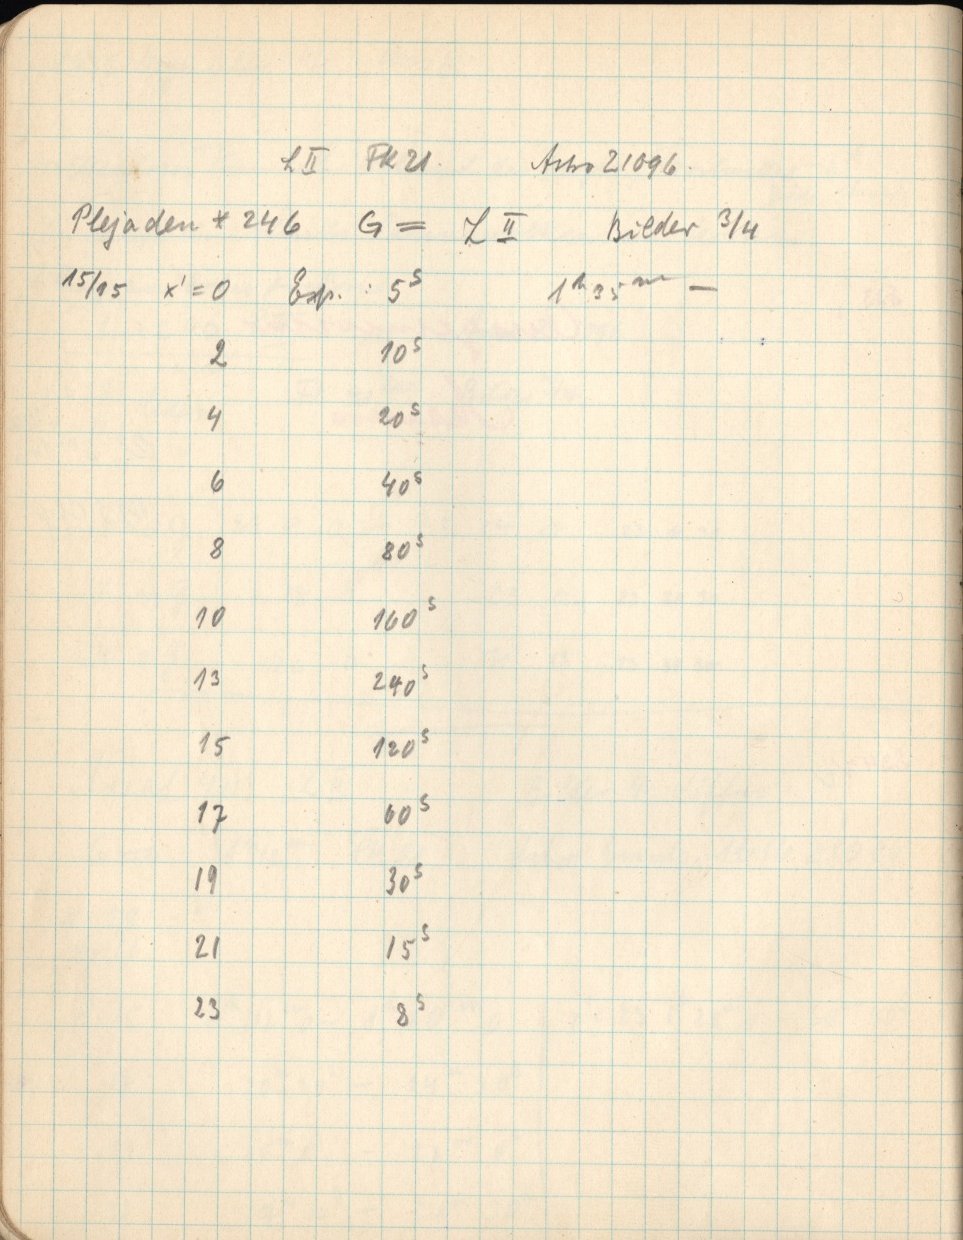 L II FK 21. Astro 21096.
Plejaden * 246 G = L II Bilder 3/4
15/15 x' = 0 Exp. : 5ˢ 1ʰ 35ᵐ —
2 10ˢ
4 20ˢ
6 40ˢ
8 80ˢ
10 160ˢ
13 240ˢ
15 120ˢ
17 60ˢ
19 30ˢ
21 15ˢ
23 8ˢ